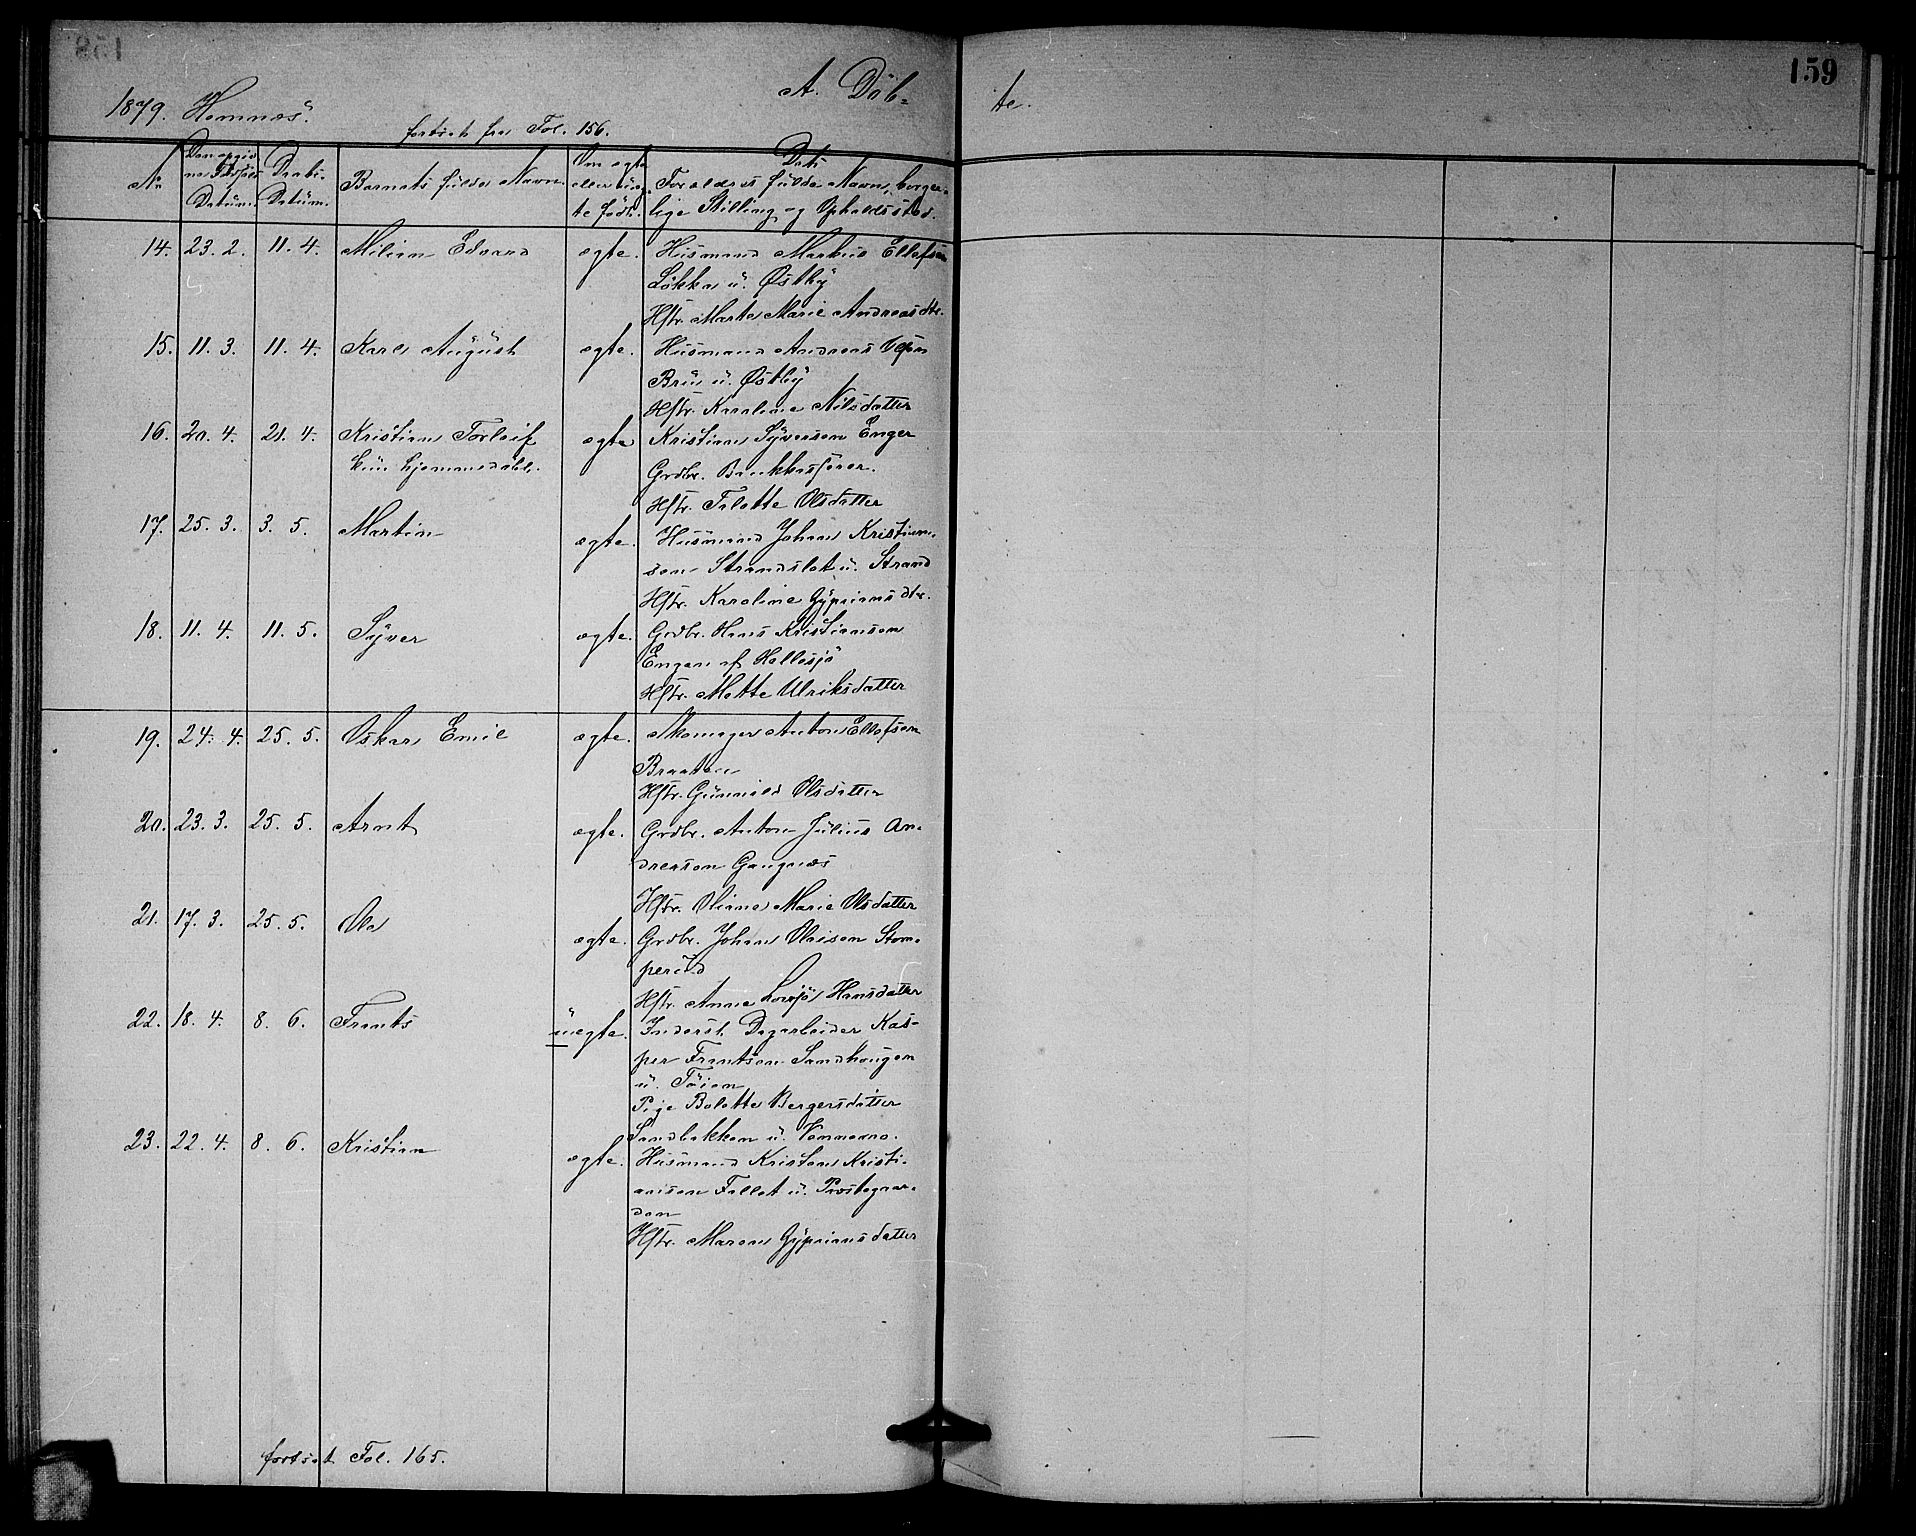 159
1879. Hemnæs.
A. Döb-
te.
fortsat fra Fol. 156.
No
Den opgiv
ne Fødsels
Datum.
Daabs
Datum.
Barnets fulde Navn.
Om ægte
eller uæg-
te født.
Dets
Forældres fulde Navn, borger-
lige Stilling og Opholdssted.
14. 23. 2. 11. 4. Milian Edvard ægte. Husmand Markus Ellefsen
Løkka u. Østby
Hstr. Marte Marie Andreasdtr.
15. 11. 3. 11. 4. Karl August ægte. Husmand Andreas Olsen
Bru u. Østby
Hstr. Karoline Nilsdatter
16. 20. 4. 21. 4. Kristian Torleif ægte Kristian Syversen Enger
kun hjemmedøbt.
Grdbr. Bankkasserer.
Hstr. Talette Olsdatter
17. 25. 3. 3. 5. Martin ægte. Husmand Johan Kristian-
sen Strandslet u. Strand
Hstr. Karoline Gypriansdtr.
18. 11. 4. 11. 5. Syver ægte. Grdbr. Hans Kristiansen
Engen af Hallesjö
Hstr. Mette Ulriksdatter
19. 24. 4. 25. 5. Oskar Emil ægte. Skomager Anton Ellefsen
Braaten
Hstr. Gunnild Olsdatter
20. 23. 3. 25. 5. Arnt ægte. Grdbr. Anton Julius An-
dreasen Gangnæs
Hstr. Oliane Marie Olsdatter
21. 17. 3. 25. 5. Ole ægte. Grdbr. Johan Olaisen Stom-
perud
Hstr. Anne Lovise Hansdatter
22. 18. 4. 8. 6. Frants uægte. Inderst Dagarbeider Kas-
per Frantsen Sandhaugen
u. Töien
Pige Bolette Bergersdatter
Sandbakken u. Vennemo.
23. 22. 4. 8. 6. Kristian ægte. Husmand Kristen Kristi-
ansen Fallet u. Prestegaar-
den
Hstr. Maren Gypriansdatter
fortsat Fol. 165.